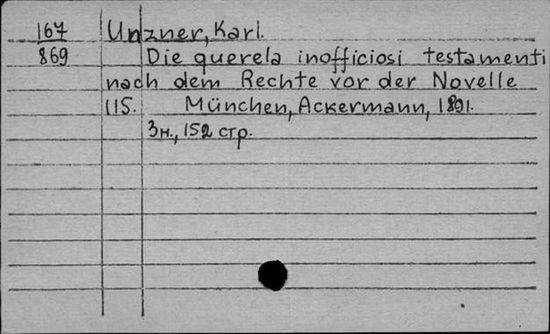 167 Unzner, Karl.
869 Die querela inofficiosi testamenti
nach dem Rechte vor der Novelle
115. München, Ackermann, 1891.
3н., 152 стр.